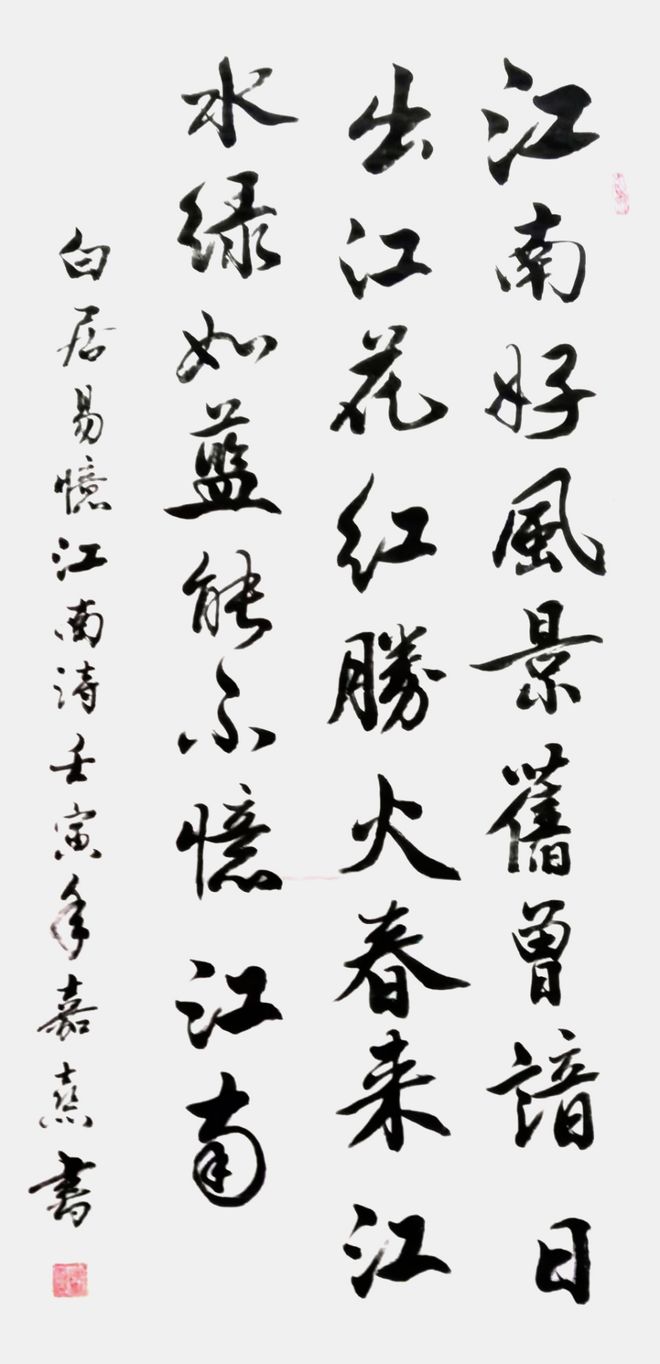 江南好風景舊曾諳日
出江花紅勝火春来江
水緑如藍能不憶江南
白居易憶江南詩壬寅年嘉熹書